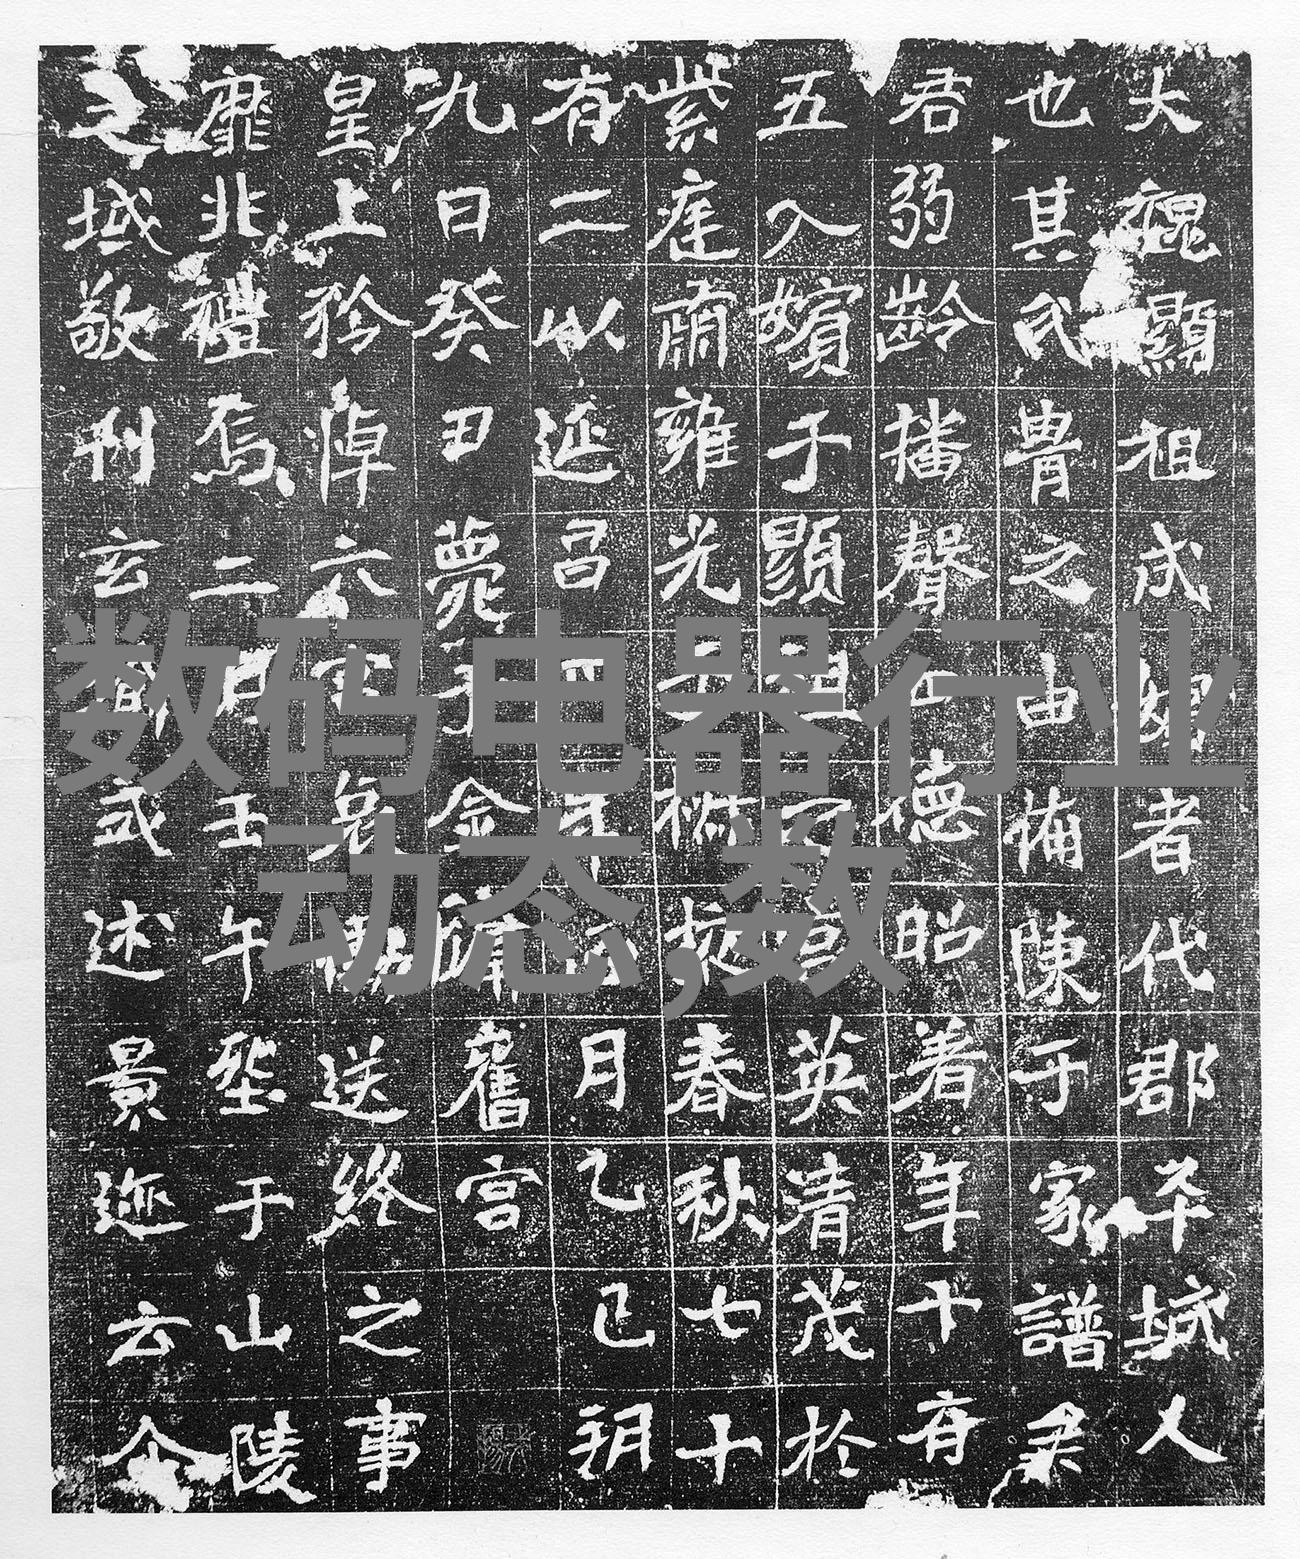 大魏顯祖成嬪者代郡平城人
也其氏胄之由備陳于家譜
君弱齡播聲德昭著年十有
五入嬪于顯祖英清茂於
紫庭肅雍光于椒掖春秋七十
有二以延昌四年正月乙巳朔
九日癸丑薨于金墉舊宮
皇上矜悼六宮哀慟送終之事
靡非禮焉二月壬午堲于山陵
之域敬刊玄式述景迹云尒
数码电器行业
动态,数